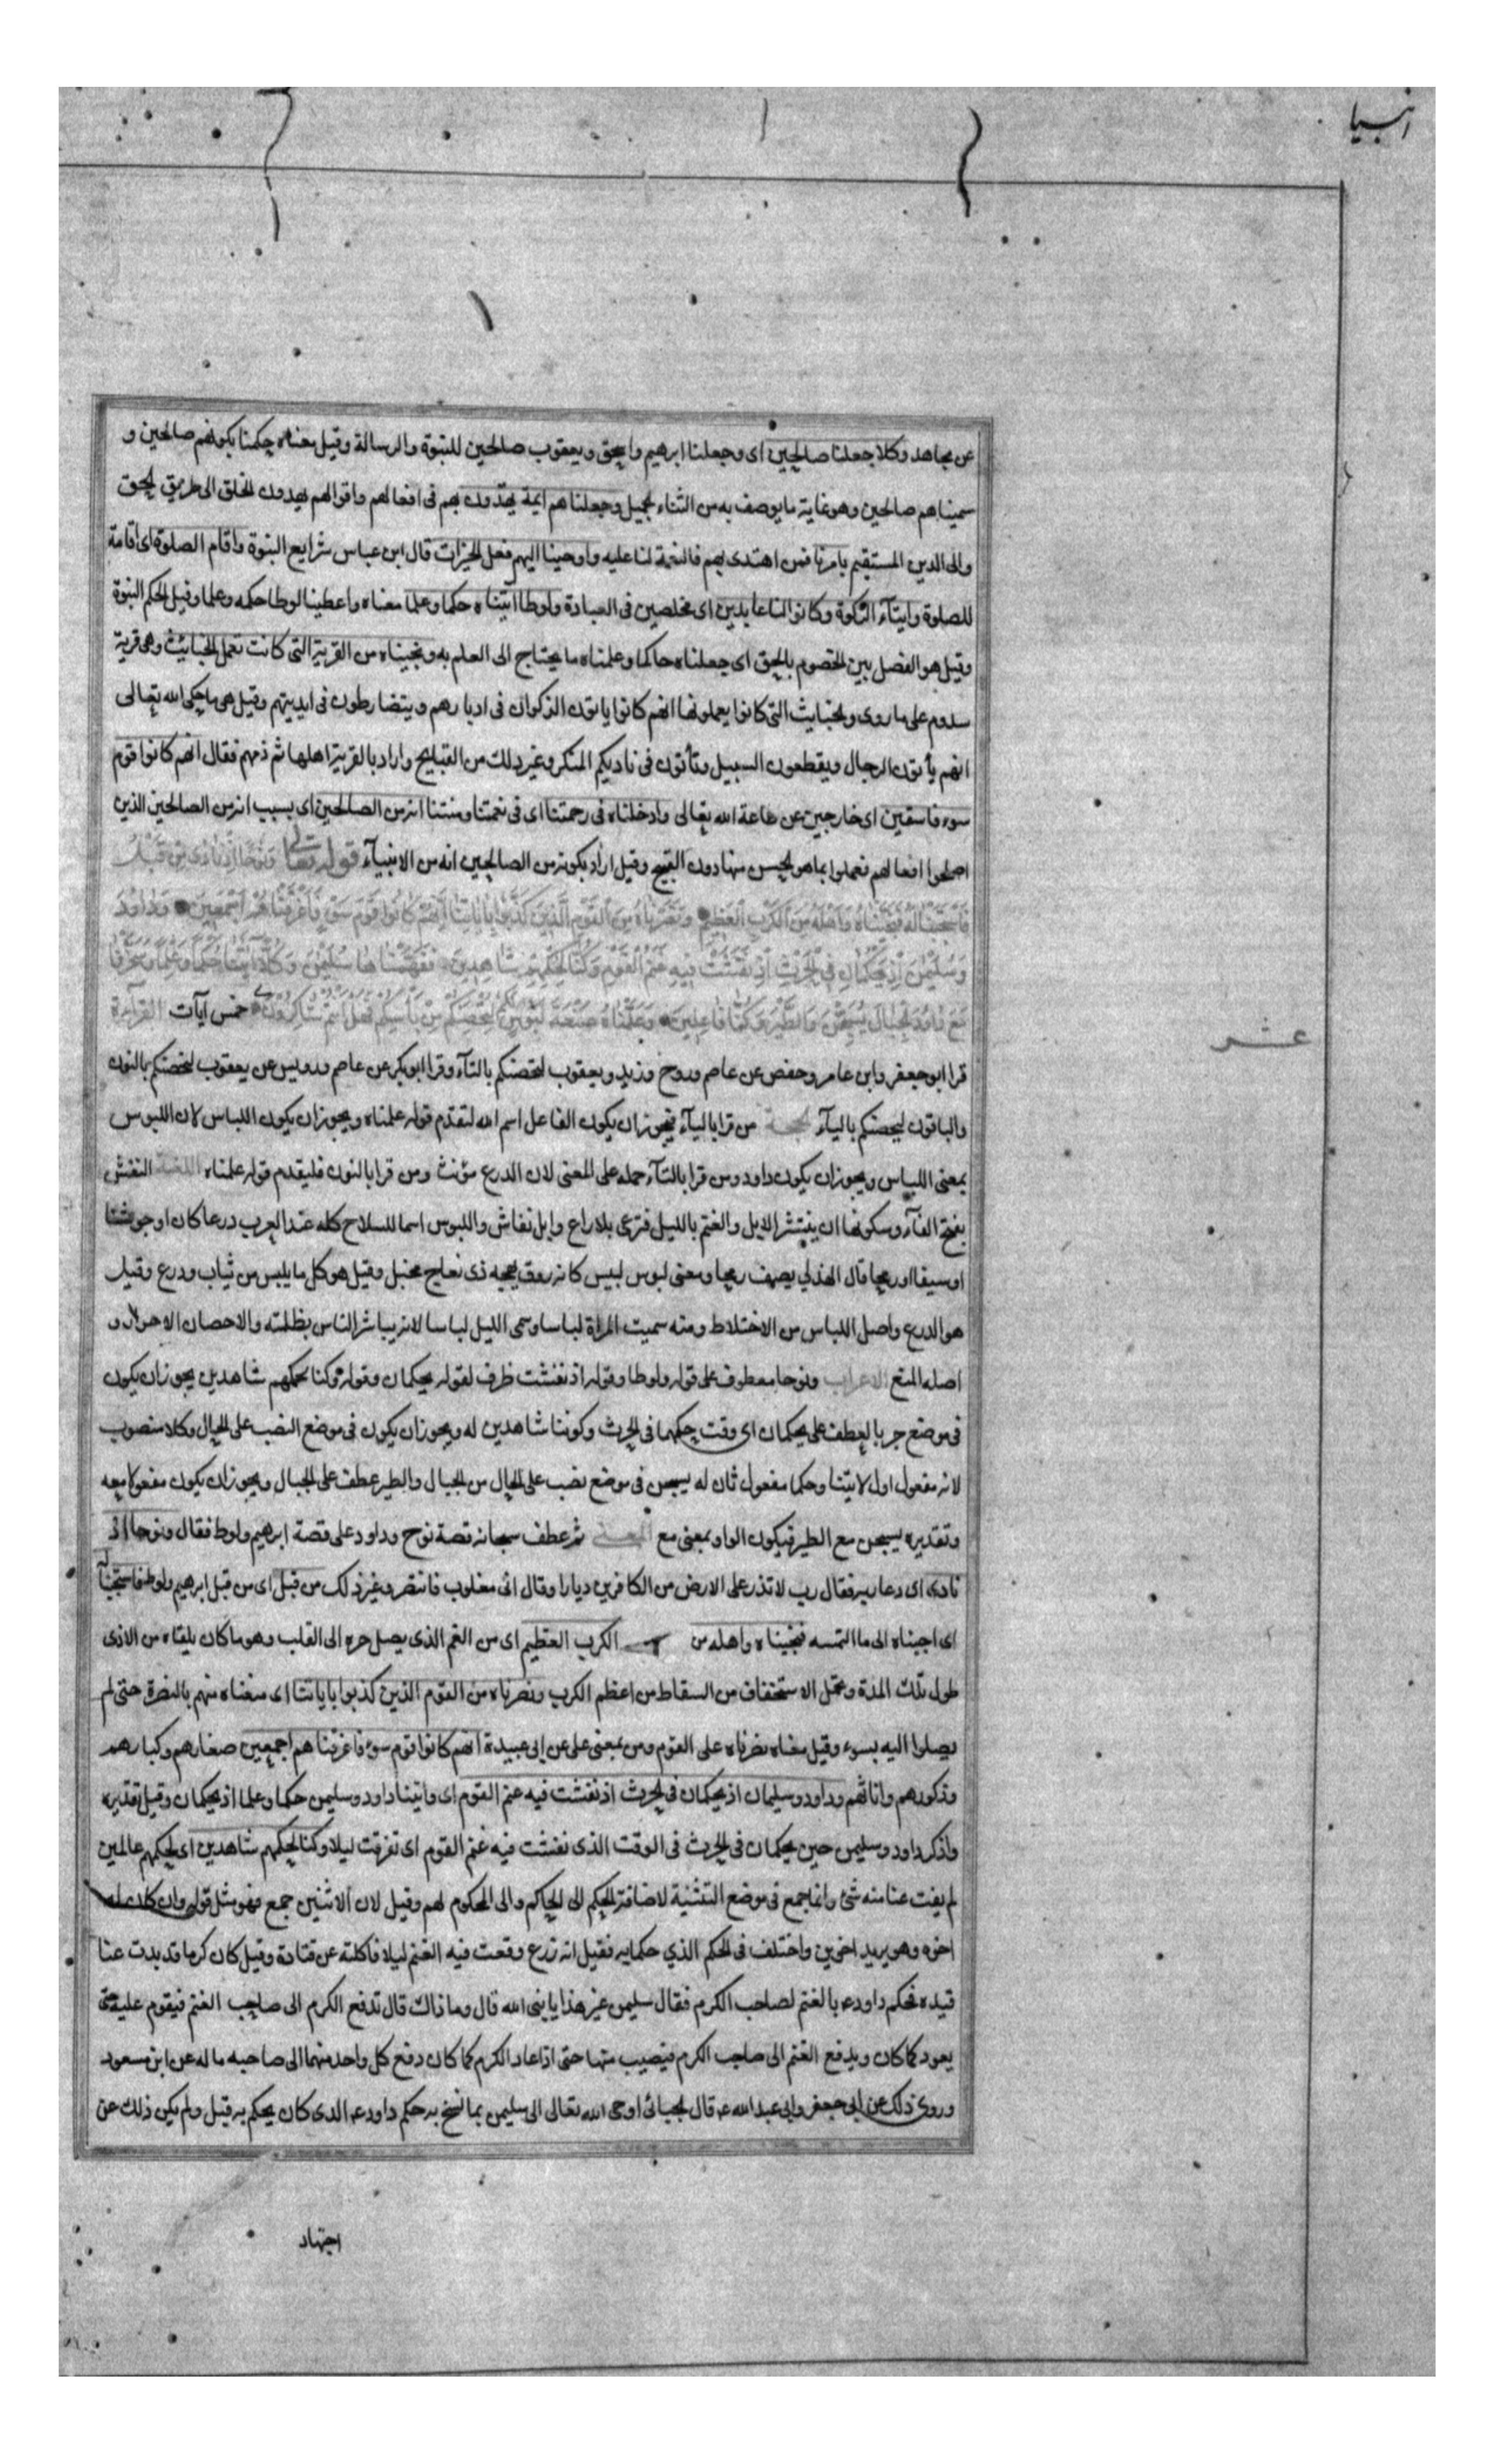 انبيا
عن مجاهد وكلا جعلنا صالحين اى وجعلنا ابرهيم واسحق ويعقوب صالحين للنبوة والرسالة وقيل معناه حكمنا بكونهم صالحين و
سميناهم صالحين وهو غاية ما يوصف به من الثناء الجميل وجعلناهم ايمة يهتدون بهم فى افعالهم واقوالهم يهدون الخلق الى طريق الحق
والى الدين المستقيم بامرنا فمن اهتدى بهم فالنعمة لنا عليه واوحينا اليهم فعل الخيرات قال ابن عباس شرايع النبوة واقام الصلوة اى اقامة
للصلوة وايتآء الزكوة وكانوا لنا عابدين اى مخلصين فى العبادة ولوطا آتيناه حكما وعلما معناه واعطينا لوطا حكمه وعلما وقيل الحكم النبوة
وقيل هو الفصل بين الخصوم بالحق اى جعلناه حاكما وعلمناه ما يحتاج الى العلم به ونجيناه من القرية التى كانت تعمل الخبائث وهى قرية
سدوم على ما روى والخبايث التى كانوا يعملونها انهم كانوا ياتون الذكوان فى ادبارهم ويتضارطون فى انديتهم وقيل هى ما حكى الله تعالى
انهم يأتون الرجال ويقطعون السبيل وتأتون فى ناديكم المنكر وغير ذلك من القبايح واراد بالقرية اهلها ثم ذمهم فقال انهم كانوا قوم
سوء فاسقين اى خارجين عن طاعة الله تعالى وادخلناه فى رحمتنا اى فى نعمتنا ومنتنا انه من الصالحين اى بسبب انه من الصالحين الذين
اصلحوا افعالهم فعملوا بما هو الحسن منها دون القبيح وقيل اراد بكونه من الصالحين انه من الانبيآء قوله تعالى ونوحا اذ نادى من قبل
فاستجبنا له فنجيناه واهله من الكرب العظيم ونصرناه من القوم الذين كذبوا باياتنا انهم كانوا قوم سوء فاغرقناهم اجمعين وداود
وسليمن اذ يحكمان فى الحرث اذ نفشت فيه غنم القوم وكنا لحكمهم شاهدين ففهمناها سليمن وكلا اتينا حكما وعلما وسخرنا
مع داود الجبال يسبحن والطير وكنا فاعلين وعلمناه صنعة لبوس لكم لتحصنكم من بأسكم فهل انتم شاكرون خمس آيات القراءة
عشر
قرا ابو جعفر وابن عامر وحفص عن عاصم وروح وزيد ويعقوب لتحصنكم بالتآء وقرا ابو بكر عن عاصم ورويس عن يعقوب لنحصنكم بالنون
والباقون ليحصنكم باليآء الحجة من قرا باليآء فيجوز ان يكون الفاعل اسم الله لتقدم قوله علمناه ويجوز ان يكون اللباس لان اللبوس
بمعنى اللباس ويجوز ان يكون داود ومن قرا بالتآء حمله على المعنى لان الدرع مؤنث ومن قرا بالنون فليقدم قوله علمناه اللغة النفش
بفتح الفآء وسكونها ان ينتشر الابل والغنم بالليل فترعى بلا راع وابل نفاش واللبوس اسما للسلاح كله عند العرب درعا كان او جوشنا
او سيفا او رمحا قال الهذلي يصف رمحا ومعنى لبوس لبيس كانه روق بجبهة ذى نعاج مجفل وقيل هو كل ما يلبس من ثياب ودرع وقيل
هو الدرع واصل اللباس من الاختلاط ومنه سميت المراة لباسا وسمى الليل لباسا لانه يباشر الناس بظلمته والاحصان الاحراز و
اصله المنع الاعراب ونوحا معطوف على قوله ولوطا وقوله اذ نفشت ظرف لقوله يحكمان وقوله وكنا لحكمهم شاهدين يجوز ان يكون
فى موضع جر بالعطف على يحكمان اى وقت حكمهما فى الحرث وكوننا شاهدين له ويجوز ان يكون فى موضع النصب على الحال وكلا منصوب
لانه مفعول اول لاتينا وحكما مفعول ثان له يسبحن فى موضع نصب على الحال من الجبال والطير عطف على الجبال ويجوز ان يكون مفعولا معه
وتقديره يسبحن مع الطير فيكون الواو بمعنى مع المعنى ثم عطف سبحانه قصة نوح وداود على قصة ابرهيم ولوط فقال ونوحا اذ
نادى اى دعا ربه فقال رب لا تذر على الارض من الكافرين ديارا وقال انى مغلوب فانتصر وغير ذلك من قبل اى من قبل ابرهيم ولوط فاستجبنا له
اى اجبناه الى ما التمسه فنجيناه واهله من الكرب العظيم اى من الغم الذى يصل حره الى القلب وهو ما كان يلقاه من الاذى
طول تلك المدة وتحمل الاستخفاف من السقاط من اعظم الكرب ونصرناه من القوم الذين كذبوا باياتنا اى منعناه منهم بالنصرة حتى لم
يصلوا اليه بسوء وقيل معناه نصرناه على القوم ومن بمعنى على عن ابى عبيدة انهم كانوا قوم سوء فاغرقناهم اجمعين صغارهم وكبارهم
وذكورهم واناثهم وداود وسليمان اذ يحكمان فى الحرث اذ نفشت فيه غنم القوم اى واتينا داود وسليمن حكما وعلما اذ يحكمان وقيل تقديره
واذكر داود وسليمن حين يحكمان فى الحرث فى الوقت الذى نفشت فيه غنم القوم اى تفرقت ليلا وكنا لحكمهم شاهدين اى لحكمهم عالمين
لم يفت عنا منه شئ وانما جمع فى موضع التثنية لاضافة الحكم الى الحاكم والى المحكوم لهم وقيل لان الاثنين جمع فهو مثل قوله وان كان له
اخوه وهو يريد اخوين واختلف فى الحكم الذي حكما به فقيل انه زرع وقعت فيه الغنم ليلا فاكلته عن قتادة وقيل كان كرما قد بدت عنا
قيده فحكم داود ع بالغنم لصاحب الكرم فقال سليمن غير هذا يا نبى الله قال وما ذاك قال تدفع الكرم الى صاحب الغنم فيقوم عليه حتى
يعود كما كان ويدفع الغنم الى صاحب الكرم فيصيب منها حتى اذا عاد الكرم كما كان دفع كل واحد منهما الى صاحبه ماله عن ابن مسعود
وروى ذلك عن ابى جعفر وابى عبد الله ع قال الجبائى اوحى الله تعالى الى سليمن بما نسخ به حكم داود ع الذى كان يحكم به قبل ولم يكن ذلك عن
اجتهاد